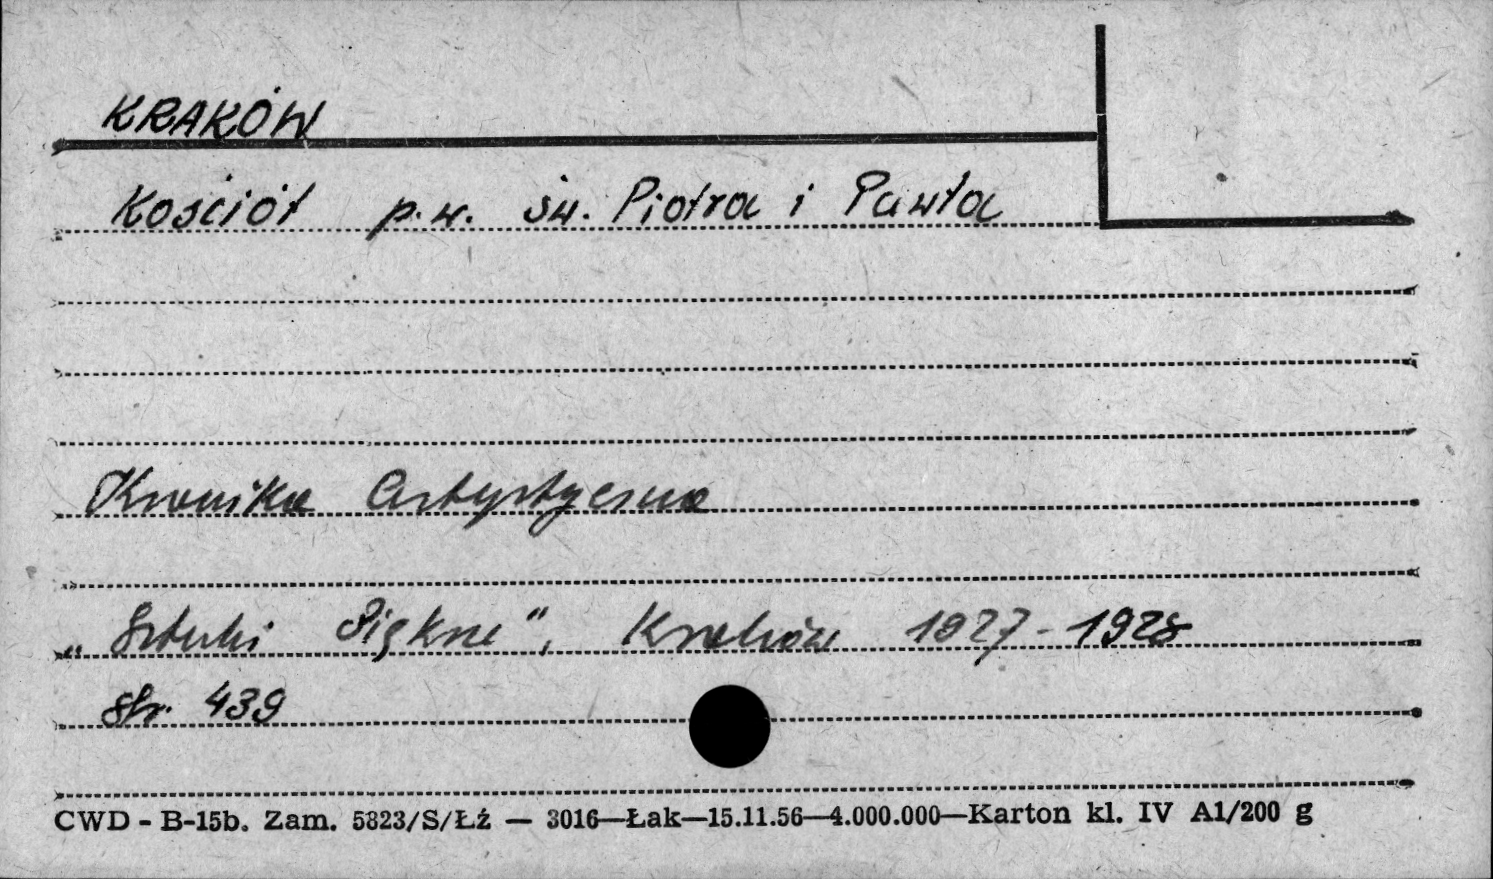 KRAKÓW
Kościół p.w. św. Piotra i Pawła
Kronika Artystyczna
„Sztuki Piękne", Kraków 1927-1928
str. 439
CWD - B-15b. Zam. 5823/S/Łź — 3016—Łak—15.11.56—4.000.000—Karton kl. IV A1/200 g